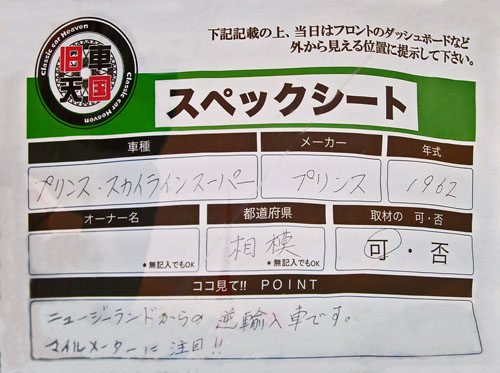 下記記載の上、当日はフロントのダッシュボードなど
外から見える位置に提示して下さい。
Classic car Heaven
旧車
天国
Classic car Heaven
スペックシート
車種
メーカー
年式
プリンス・スカイラインスーパー
プリンス
1962
オーナー名
都道府県
取材の 可・否
相模
可・否
*無記入でもOK
*無記入でもOK
ココ見て!! POINT
ニュージーランドからの逆輸入車です。
マイルメーターに注目!!